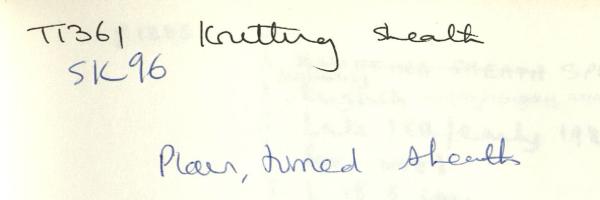 T1361 Knitting sheath
SK96
Plain, turned sheath